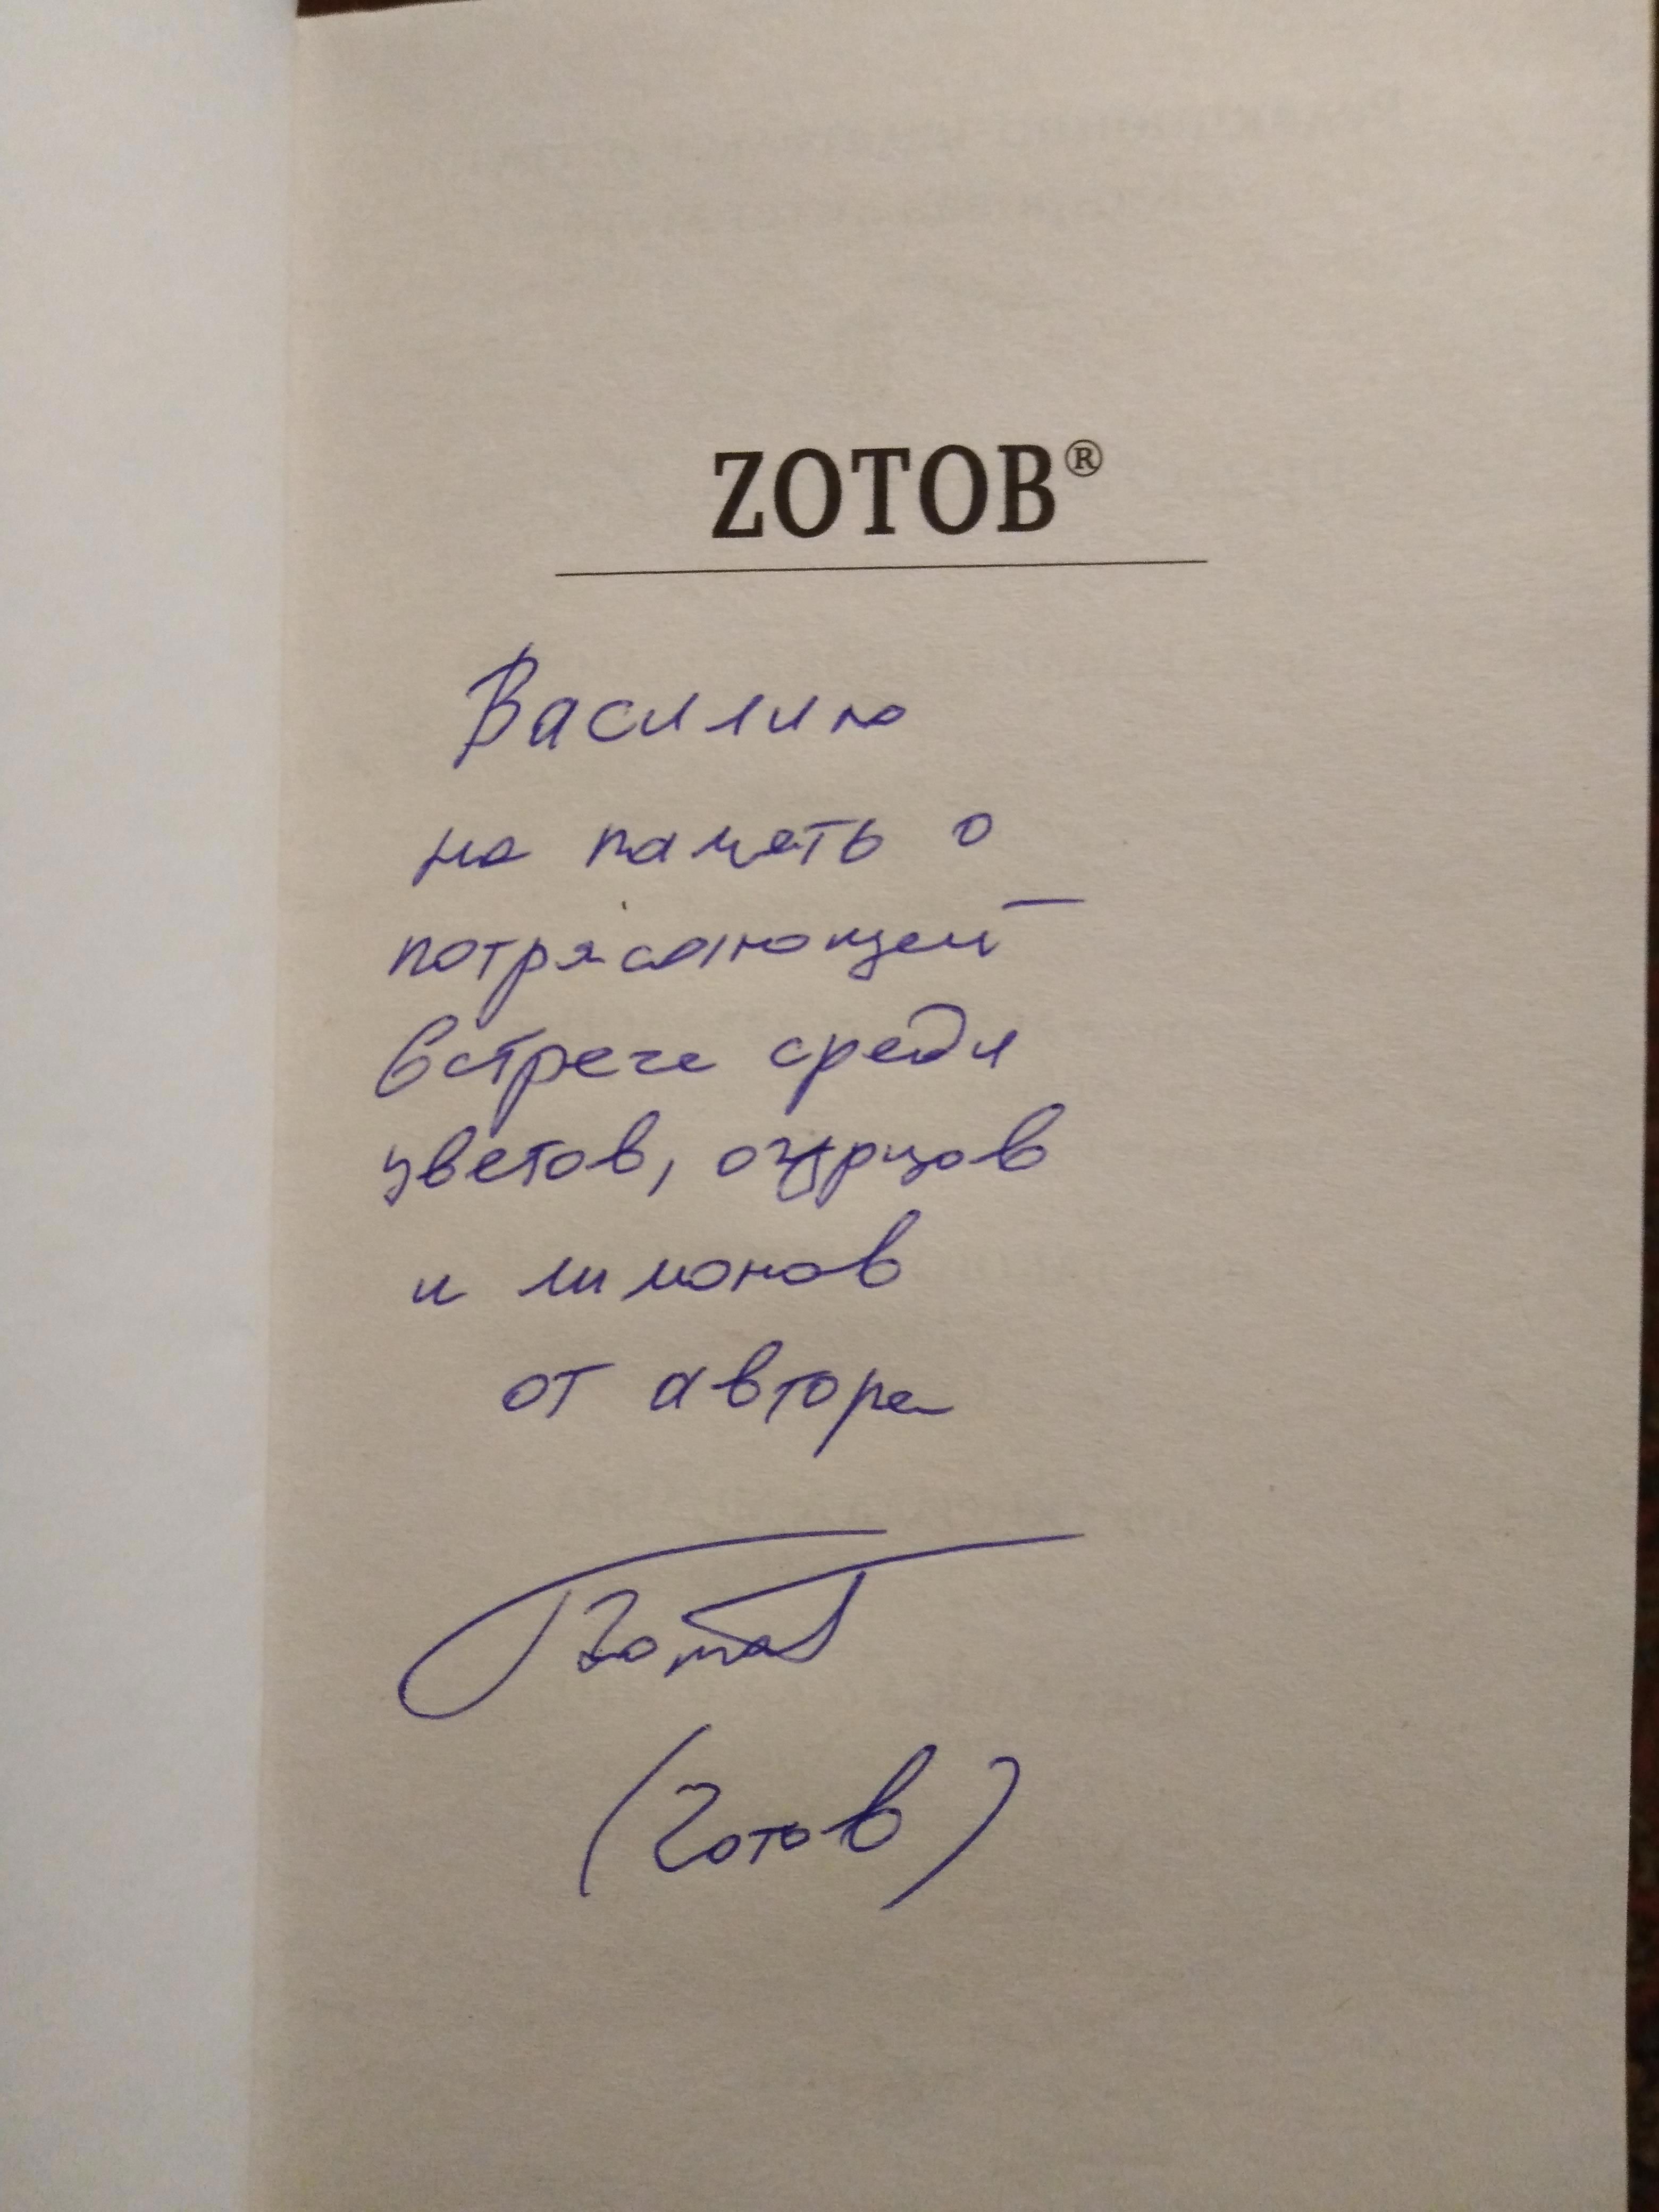 ZOTOB®
Василию
на память о
потрясающей
встрече среди
цветов, огурцов
и лимонов
от автора
Zотов
(Zотов)